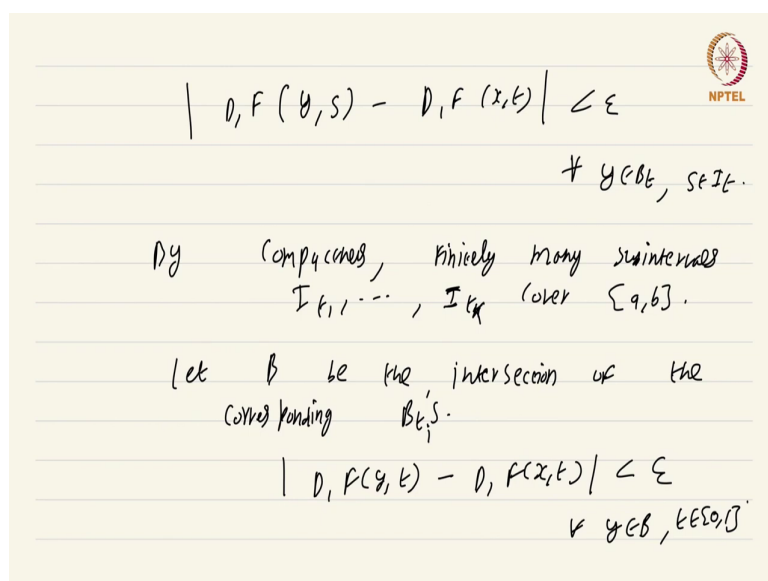 NPTEL
| D₁F(y,s) - D₁F(x,t) | < ε
∀ y∈Bt, s∈It.
By compactness, finitely many subintervals
It₁, ..., Itₖ cover [a,b].
let B be the intersection of the
corresponding Btᵢ's.
| D₁F(y,t) - D₁F(x,t) | < ε
∀ y∈B, t∈[0,1].